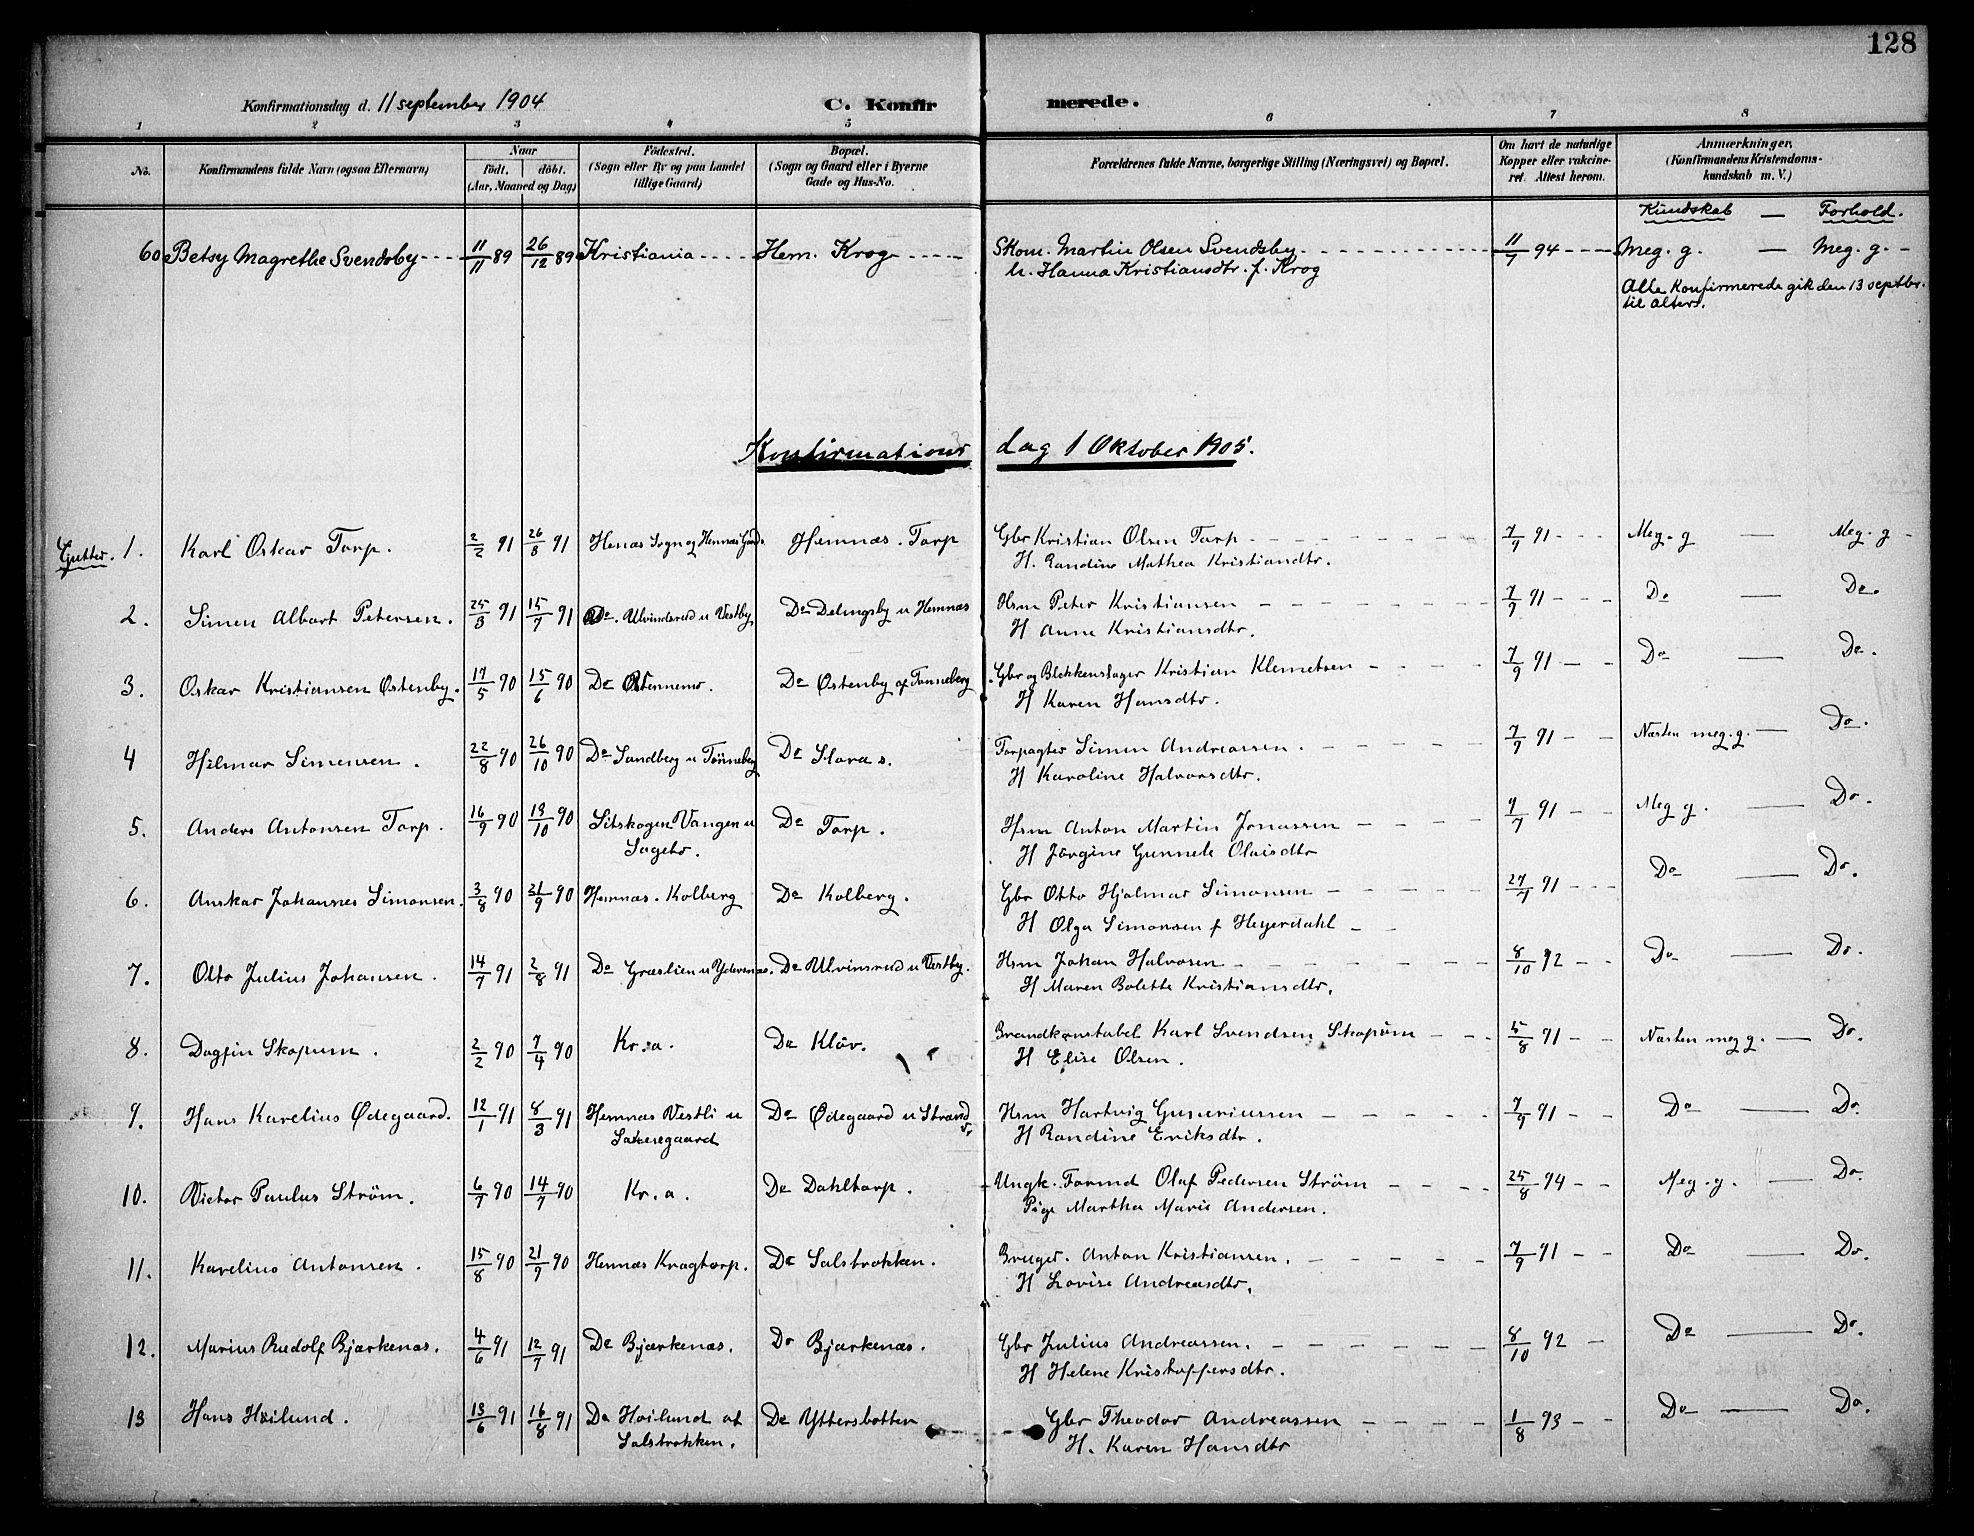 128
Konfirmationsdag d. 11 september 1904
C. Konfir merede.
1 2 3 4 5 6 7 8
No. Konfirmandens fulde Navn (ogsaa Efternavn) Naar födt. döbt. (Aar, Maaned og Dag) Födested. (Sogn eller By og paa Landet tillige Gaard) Bopæl. (Sogn og Gaard eller i Byerne Gade og Hus-No. Forældrenes fulde Navne, borgerlige Stilling (Næringsvei) og Bopæl. Om havt de naturlige Kopper eller vakcineret. Attest herom. Anmærkninger, (Konfirmandens Kristendomskundskab m. V.)
Kundskab — Forhold.
60 Betsy Magrethe Svendsby 11/11 89 26/12 89 Kristiania Hem. Krog Skom. Martin Olsen Svendsby 11/7 94 Meg. g. — Meg. g.
h. Hanna Kristiansdtr. f. Krog
Alle Konfirmerede gik den 13 septbr.
til alters.
Konfirmations dag 1 Oktober 1905.
Gutter. 1. Karl Oskar Torp. 2/2 91 26/3 91 Hemnæs. Torp Gbr Kristian Olsen Torp 7/9 91 Meg. g — Meg. g
H. Randine Mathea Kristiandtr.
2. Simen Albert Petersen. 25/3 91 15/7 91 Do. Ulvinsrud u Vestby Do Delingsby u Hemnæs Hsm Peter Kristiansen 7/9 91 Do — Do.
H Anne Kristiansdtr.
3. Oskar Kristiansen Østenby. 17/5 90 15/6 90 Do Do Østenby af Tønneberg Gbr og Blikkenslager Kristian Klemetsen 7/9 91 Do — Do.
H Karen Hansdtr.
4 Hilmar Simensen. 22/8 90 26/10 90 Do Sandberg u Tønneberg Do Forpagter Simen Andreassen. 7/9 91 Næsten meg. g. — Do.
H Karoline Halvorsdtr.
5. Anders Antonsen Torp. 16/9 90 19/10 90 Setskogen Vangen u Do Torp. Hsm Anton Martin Jonassen 91 Meg g. — Do.
H Jörgine Gunnele Olaisdtr
6. Anskar Johannes Simonsen. 3/8 90 21/9 90 Hemnæs. Kolberg Do Kolberg. Gbr Otto Hjalmar Simonsen 27/7 91 Do — Do.
H Olga Simonsen f Heyerdahl
7. Otto Julius Johansen. 14/7 91 2/8 91 Do Græslien u Ydersnæs. Do Ulvinsrud u Vestby. Hsm Johan Halvorsen 8/10 92 Do — Do.
H Maren Bolette Kristiansdtr.
8. Dagfin Skopum. 2/2 90 7/4 90 Kr.a. Do Kløv. Brandkonstabel Karl Svendsen Skopum 5/8 91 Næsten meg g. — Do.
H Elise Olsen.
9. Hans Karelius Ødegaard. 12/1 91 8/3 91 Hemnæs Vestli u Do Ødegaard u Strand Hsm Hartvig Guneriussen 7/9 91 Do — Do.
H Randine Eriksdtr.
10. Victor Paulus Strøm. 6/7 90 14/7 90 Kr.a. Do Dahltorp. Ungk. Formd Olaf Pedersen Strøm 25/8 94 Meg. g. — Do.
Pige Martha Marie Andersen.
11. Karelius Antonsen. 15/8 90 21/9 90 Hemnæs Kragtorp. Do Salstrokken. Bruger. Anton Kristiansen. 7/9 91 Do — Do.
H Lovise Andreasdtr.
12. Marius Rudolf Bjærkenæs. 4/6 91 12/7 91 Do Bjærkenæs. Do Bjærkenæs. Gbr Julius Andreassen. 8/10 92 Do — Do.
H Helene Kristoffersdtr.
13 Hans Høilund. 13/6 91 16/8 91 Do Høilund af Do Yttersbotten Gbr Theodor Andreassen 1/8 93 Do — Do.
Salstrokken. H. Karen Hansdtr